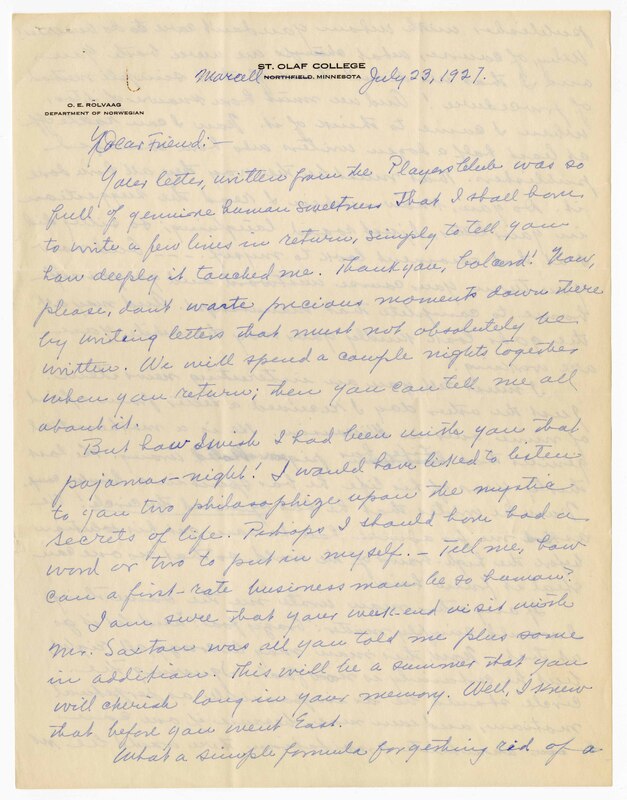 ST. OLAF COLLEGE
Marcell NORTHFIELD, MINNESOTA July 23, 1927.
O. E. RÖLVAAG
DEPARTMENT OF NORWEGIAN
Dear Friend:—
Your letter, written from the Players Club was so
full of genuine human sweetness that I shall have
to write a few lines in return, simply to tell you
how deeply it touched me. Thank you, Colcord! Now,
please, don't waste precious moments down there
by writing letters that must not absolutely be
written. We will spend a couple nights together
when you return; then you can tell me all
about it.
But how I wish I had been with you that
pajamas-night! I would have liked to listen
to you two philosophize upon the mystic
secrets of life. Perhaps I should have had a
word or two to put in myself. — Tell me, how
can a first-rate business man be so human?
I am sure that your week-end visit with
Mr. Saxton was all you told me plus some
in addition. This will be a summer that you
will cherish long in your memory. Well, I knew
that before you went East.
What a simple formula for getting rid of a